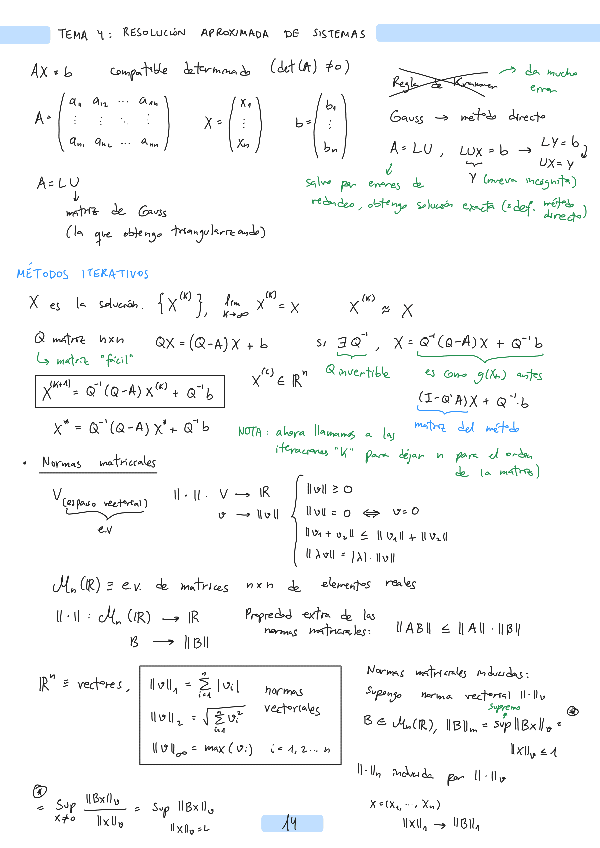 TEMA 4: RESOLUCIÓN APROXIMADA DE SISTEMAS
AX = b compatible determinado (det(A) ≠ 0)
Regla de Krammer → da mucho error
A = ( a₁₁ a₁₂ ... a₁ₙ ; ⋮ ⋮ ⋮ ; aₙ₁ aₙ₂ ... aₙₙ ) X = ( x₁ ⋮ xₙ ) b = ( b₁ ⋮ bₙ )
Gauss → método directo
A = LU, LUX = b → LY = b
UX = Y
Y (nueva incógnita)
salvo por errores de
redondeo, obtengo solución exacta (≡ def. método directo)
A = LU
↓
matriz de Gauss
(la que obtengo triangularizando)
MÉTODOS ITERATIVOS
X es la solución. {X^(K)}, lim K→∞ X^(K) = X X^(K) ≈ X
Q matriz n×n QX = (Q-A)X + b si ∃Q⁻¹, X = Q⁻¹(Q-A)X + Q⁻¹b
↳ matriz "fácil" Q invertible es como g(xₙ) antes
X^(K+1) = Q⁻¹(Q-A)X^(K) + Q⁻¹b X^(i) ∈ ℝⁿ
(I-Q⁻¹A)X + Q⁻¹·b
matriz del método
X* = Q⁻¹(Q-A)X* + Q⁻¹b
NOTA: ahora llamamos a las
iteraciones "K" para dejar n para el orden
de la matriz)
• Normas matriciales
V (espacio vectorial) ‖·‖: V → ℝ
e.v v → ‖v‖
‖v‖ ≥ 0
‖v‖ = 0 ⇔ v = 0
‖v₁ + v₂‖ ≤ ‖v₁‖ + ‖v₂‖
‖λv‖ = |λ|·‖v‖
Mₙ(ℝ) ≡ e.v. de matrices n×n de elementos reales
‖·‖: Mₙ(ℝ) → ℝ
B → ‖B‖
Propiedad extra de las
normas matriciales: ‖AB‖ ≤ ‖A‖·‖B‖
ℝⁿ ≡ vectores,
‖v‖₁ = Σ i=1 n |vi|
‖v‖₂ = √(Σ i=1 n vi²)
‖v‖∞ = max(vi) i = 1, 2 ... n
normas
vectoriales
Normas matriciales inducidas:
Supongo norma vectorial ‖·‖v
supremo
B ∈ Mₙ(ℝ), ‖B‖m = sup ‖Bx‖v = *
‖x‖v ≤ 1
‖·‖m inducida por ‖·‖v
* = sup x≠0 ‖Bx‖v / ‖x‖v = sup ‖Bx‖v
‖x‖v = 1
x = (x₁, ..., xₙ)
‖x‖₁ → ‖B‖₁
14